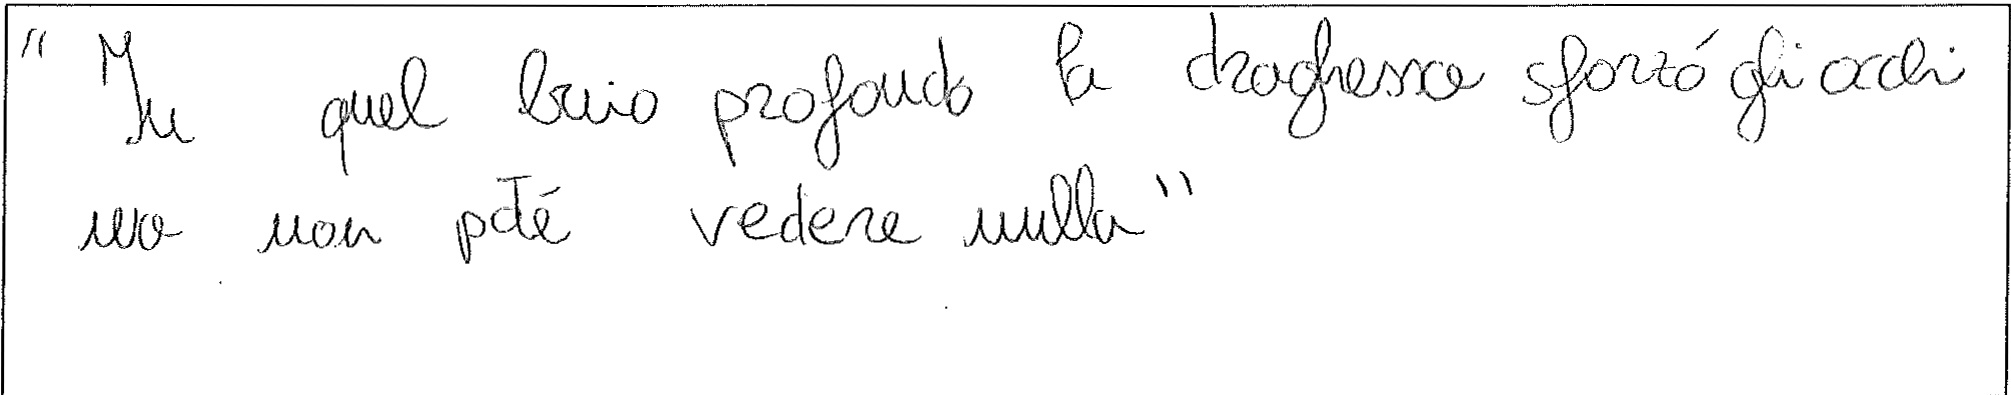 "In quel buio profondo la draghessa sforzó gli occhi
ma non poté vedere nulla"